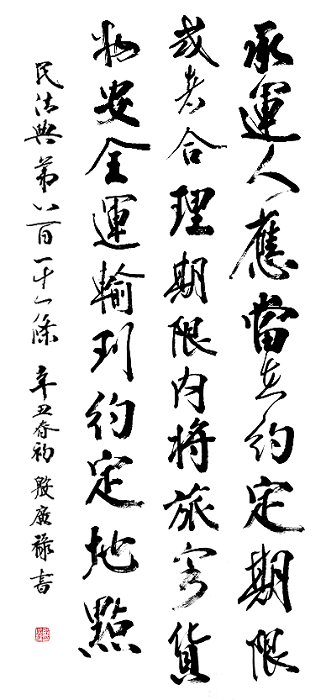 承運人應當在約定期限
或者合理期限內將旅客貨
物安全運輸到約定地點
民法典第八百一十一條 辛丑春初 殷廣祿書